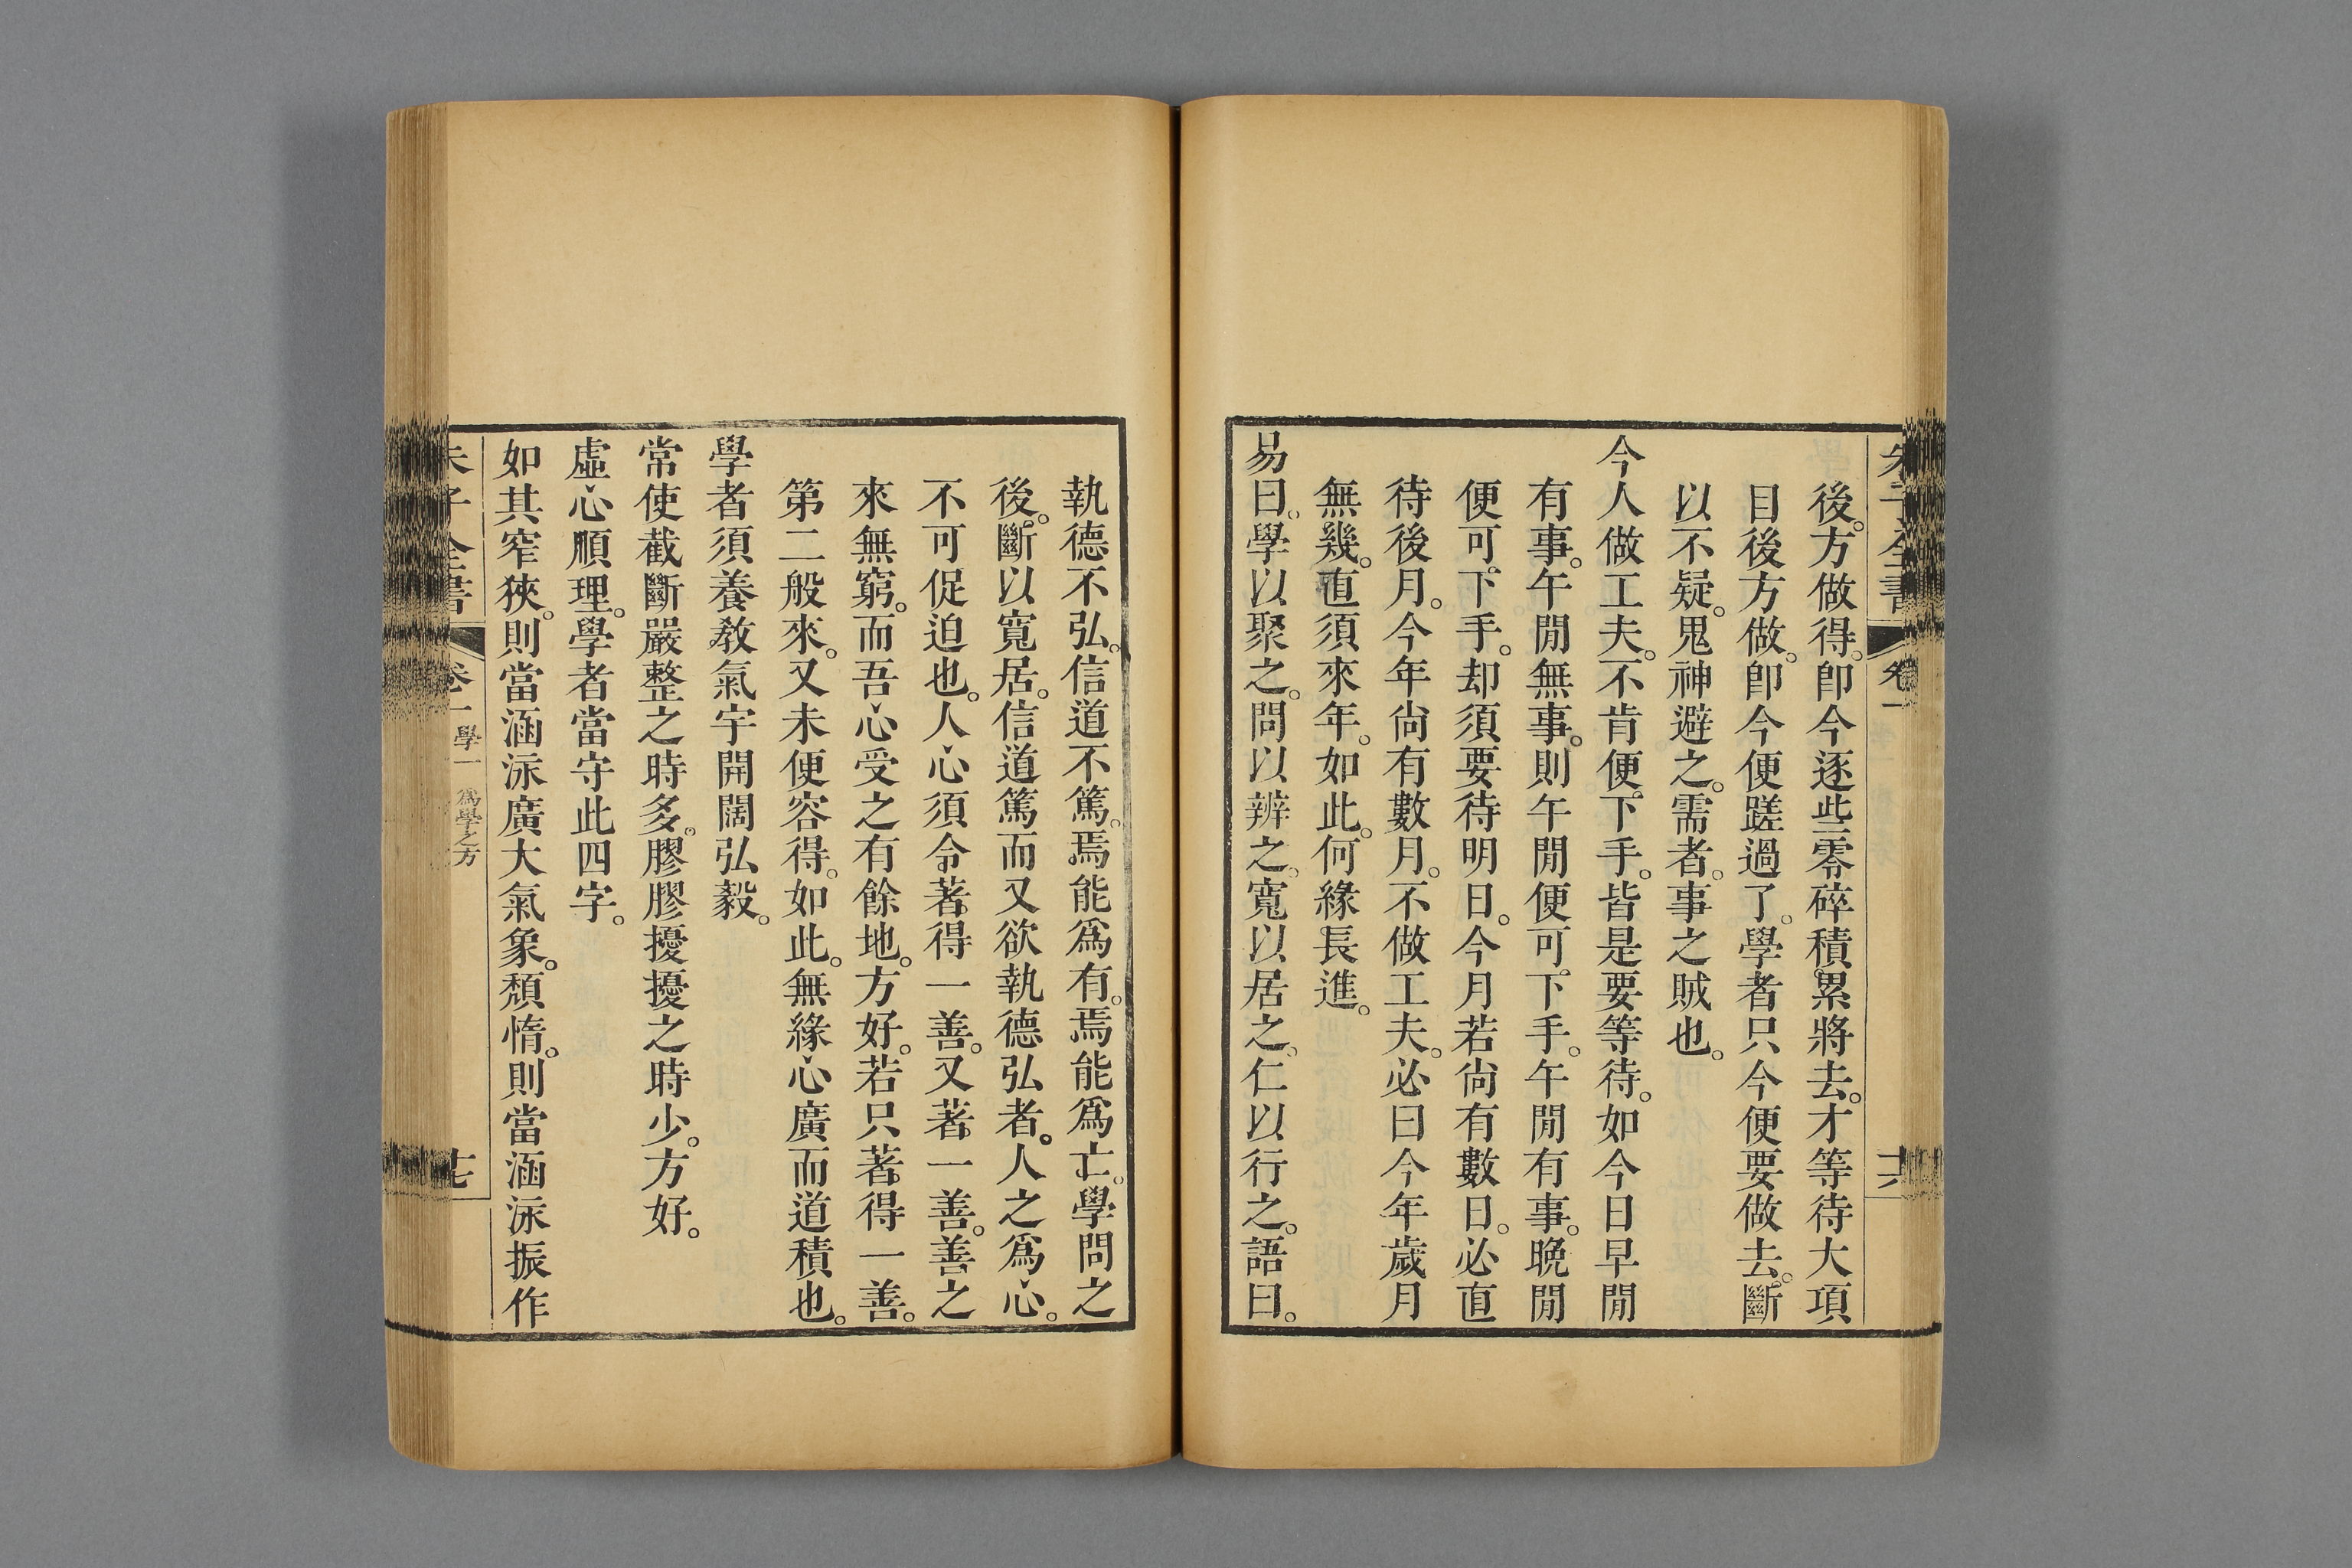 朱子全書 卷一 十六
後。方做得。卽今逐些零碎積累將去。才等待大項
目後方做。卽今便蹉過了。學者只今便要做去。斷
以不疑。鬼神避之。需者。事之賊也。
今人做工夫。不肯便下手。皆是要等待。如今日早閒
有事。午閒無事。則午閒便可下手。午閒有事。晚閒
便可下手。却須要待明日。今月若尙有數日。必直
待後月。今年尙有數月。不做工夫。必曰今年歲月
無幾。直須來年。如此。何緣長進。
易曰。學以聚之。問以辨之。寬以居之。仁以行之。語曰。
執德不弘。信道不篤。焉能爲有。焉能爲亡。學問之
後。斷以寬居。信道篤而又欲執德弘者。人之爲心。
不可促迫也。人心須令著得一善。又著一善。善之
來無窮。而吾心受之有餘地。方好。若只著得一善。
第二般來。又未便容得。如此。無緣心廣而道積也。
學者須養教氣宇開闊弘毅。
常使截斷嚴整之時多。膠膠擾擾之時少。方好。
虛心順理。學者當守此四字。
如其窄狹。則當涵泳廣大氣象。頹惰。則當涵泳振作
朱子全書 卷一 學一 爲學之方 十七